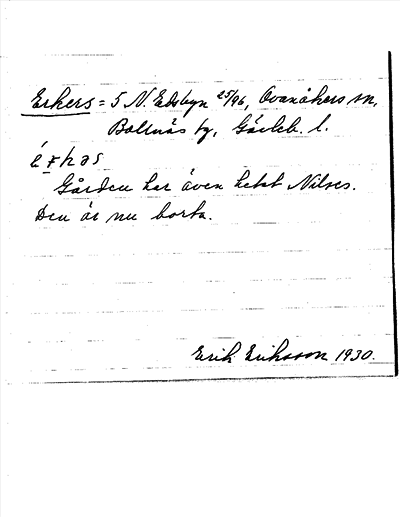 Erkers = 5 N. Edsbyn 25/96, Ovanåkers sn,
Bollnäs tg, Gävleb. l.
Gården har även hetat Nilses.
Den är nu borta.
Erik Eriksson 1930.